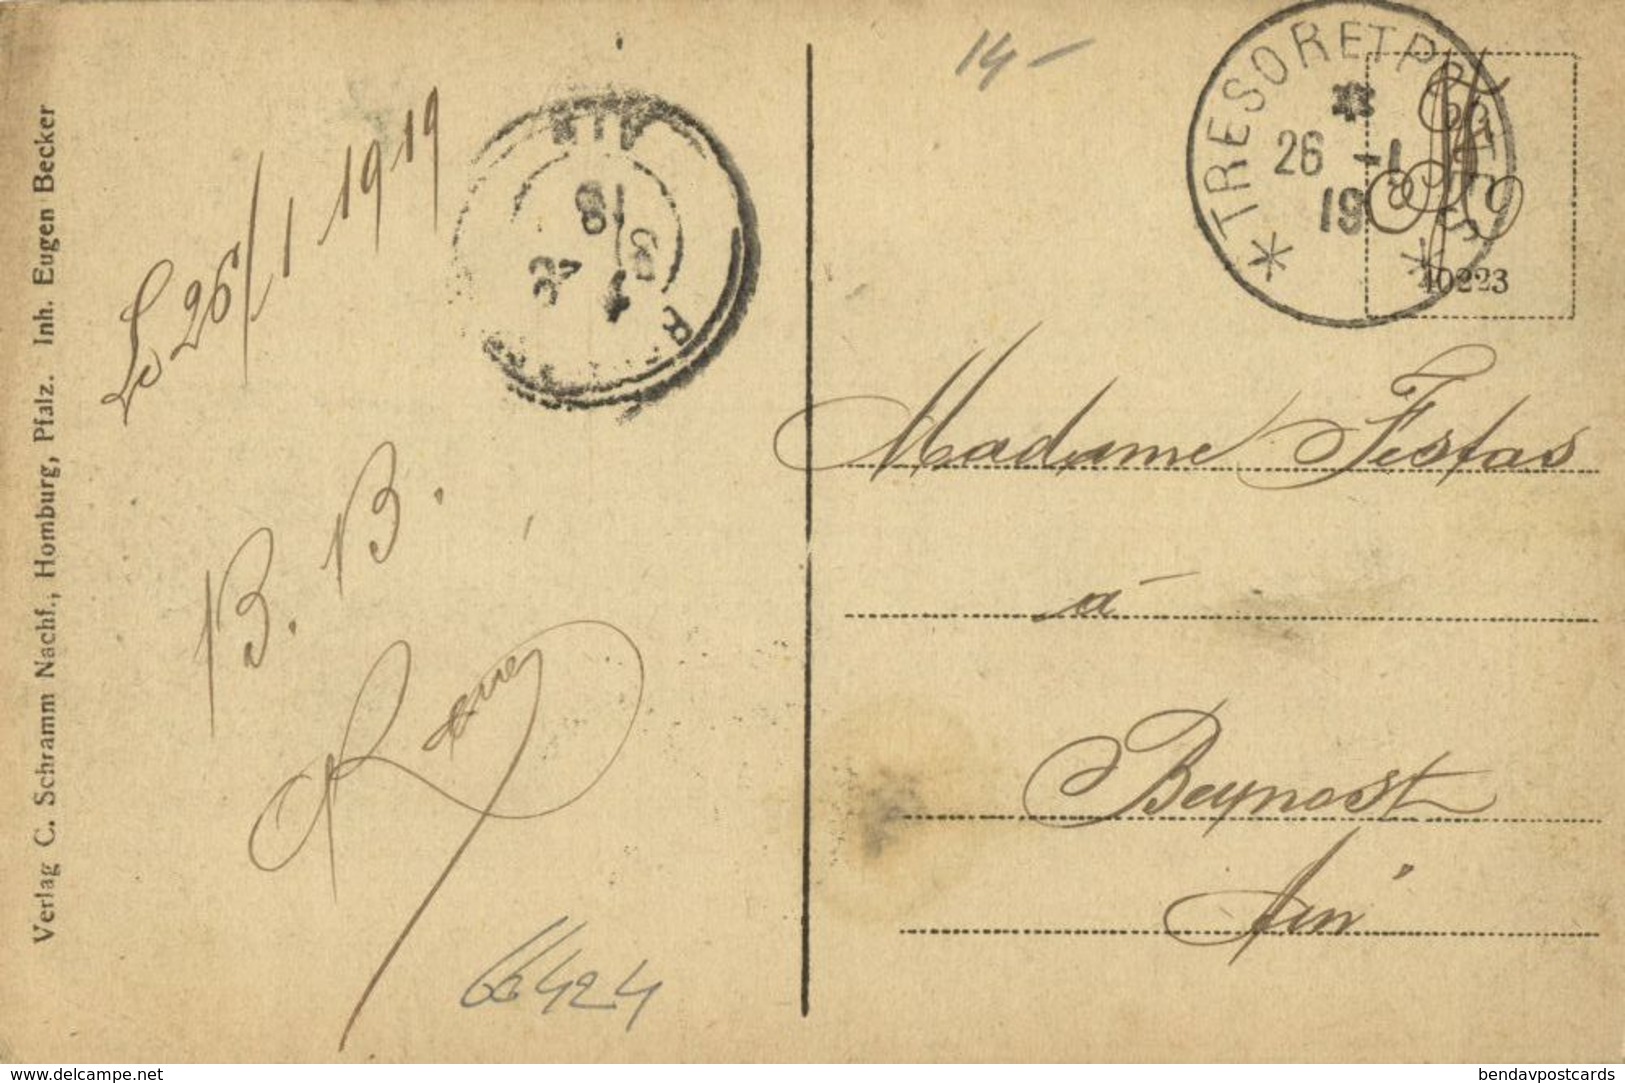 Verlag C. Schramm Nachf., Homburg, Pfalz. Inh. Eugen Becker
Le 26/1 1919
AIN
B. B.
66424
14-
TRESOR ET POSTES
26 -1
19
40223
Madame Festas
à
Beynost
Ain
www.delcampe.net
bendavpostcards